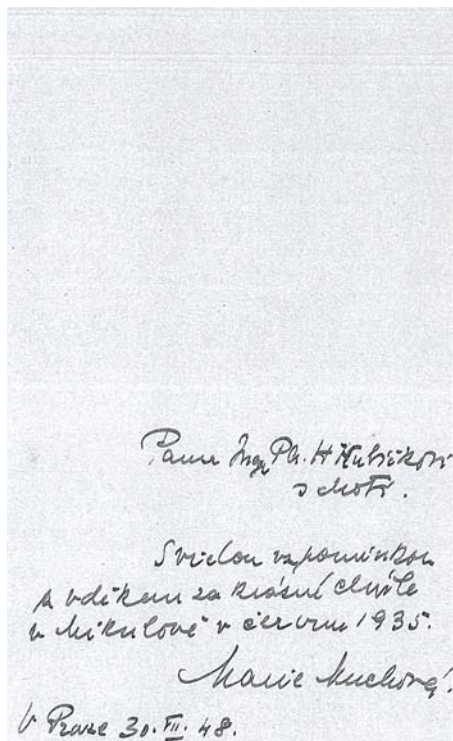 Panu Ing. Ph. H. Kubíčkovi
s chotí.
S vřelou vzpomínkou
a vděkem za krásné chvíle
v Mikulově v červnu 1935.
Marie Muchová.
V Praze 30. VII. 48.